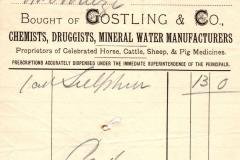 BOUGHT OF GOSTLING & CO.,
CHEMISTS, DRUGGISTS, MINERAL WATER MANUFACTURERS
Proprietors of Celebrated Horse, Cattle, Sheep, & Pig Medicines.
PRESCRIPTIONS ACCURATELY DISPENSED UNDER THE IMMEDIATE SUPERINTENDENCE OF THE PRINCIPALS.
Sulphur 13 0